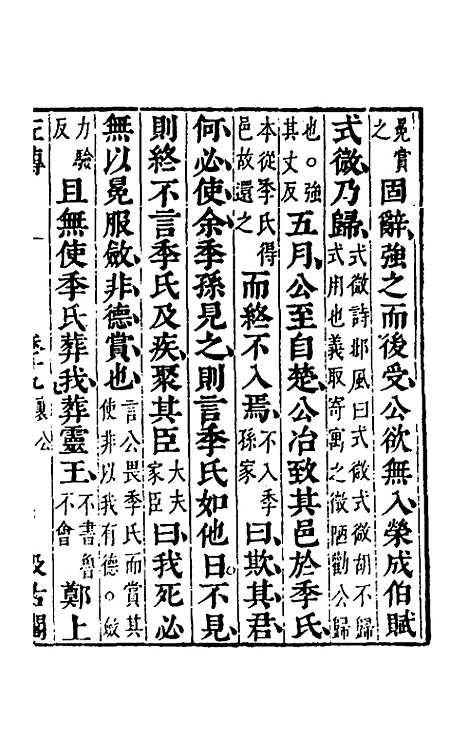 冕賞之固辭強之而後受公欲無入榮成伯賦
式微乃歸式微詩邶風曰式微式微胡不歸式用也義取寄寓之微陋勸公歸
也。強其丈反五月公至自楚公冶致其邑於季氏
本從季氏得邑故還之而終不入焉不入季孫家曰欺其君
何必使余季孫見之則言季氏如他日不見
則終不言季氏及疾聚其臣大夫家臣曰我死必
無以冕服斂非德賞也言公畏季氏而賞其使非以我有德。斂
力驗反且無使季氏葬我葬靈王不書魯不會鄭上
左傳 卷十九 襄公 汲古閣